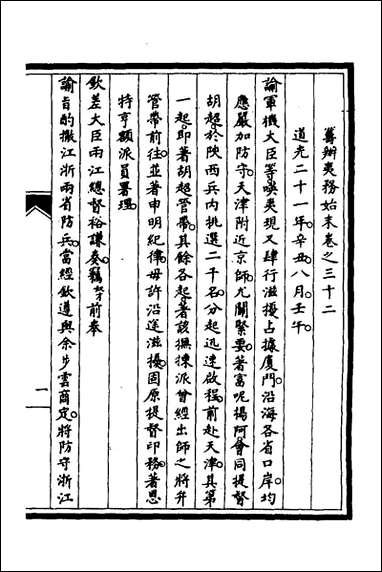 籌辦夷務始末卷之三十二
道光二十一年。辛丑。八月。壬午。
諭軍機大臣等。㗆夷現又肆行滋擾。占據廈門。沿海各省口岸。均
應嚴加防守。天津附近京師。尤關緊要。著富呢揚阿。會同提督
胡超。於陝西兵內挑選二千名。分起迅速啟程。前赴天津。其第
一起。即著胡超管帶。其餘各起。著該撫揀派曾經出師之將弁
管帶前往。並著申明紀律。毋許沿途滋擾。固原提督印務。著恩
特亨額派員署理。
欽差大臣兩江總督裕謙奏。竊奴才前奉
諭旨。酌撤江浙兩省防兵。當經欽遵與余步雲商定。將防守浙江
一